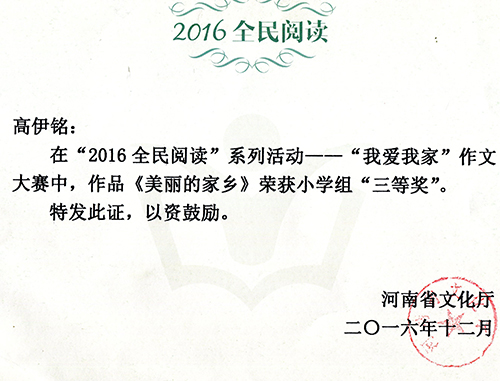 2016 全民阅读
高伊铭：
在“2016 全民阅读”系列活动——“我爱我家”作文
大赛中，作品《美丽的家乡》荣获小学组“三等奖”。
特发此证，以资鼓励。
河南省文化厅
二〇一六年十二月